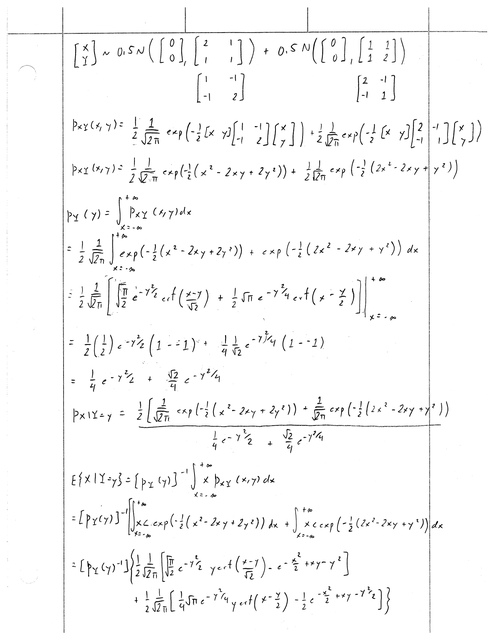 [x y] ~ 0.5 N([0 0], [2 1 1 1]) + 0.5 N([0 0], [1 1 1 2])
[1 -1 -1 2] [2 -1 -1 1]
p_XY(x,y) = 1/2 1/√2π exp(-1/2 [x y][1 -1 -1 2][x y]) + 1/2 1/√2π exp(-1/2 [x y][2 -1 -1 1][x y])
p_XY(x,y) = 1/2 1/√2π exp(-1/2(x²-2xy+2y²)) + 1/2 1/√2π exp(-1/2(2x²-2xy+y²))
p_Y(y) = ∫_{x=-∞}^{+∞} p_XY(x,y) dx
= 1/2 1/√2π ∫_{x=-∞}^{+∞} exp(-1/2(x²-2xy+2y²)) + exp(-1/2(2x²-2xy+y²)) dx
= 1/2 1/√2π [√π/2 e^{-y²/2} erf((x-y)/√2) + 1/2 √π e^{-y²/4} erf(x-y/2)] |_{x=-∞}^{+∞}
= 1/2 (1/2) e^{-y²/2} (1--1) + 1/4 1/√2 e^{-y²/4} (1--1)
= 1/4 e^{-y²/2} + √2/4 e^{-y²/4}
p_{X|Y=y} = 1/2 [1/√2π exp(-1/2(x²-2xy+2y²)) + 1/√2π exp(-1/2(2x²-2xy+y²))
1/4 e^{-y²/2} + √2/4 e^{-y²/4}
E{X|Y=y} = [p_Y(y)]^{-1} ∫_{x=-∞}^{+∞} x p_XY(x,y) dx
= [p_Y(y)]^{-1} [∫_{x=-∞}^{+∞} x c exp(-1/2(x²-2xy+2y²)) dx + ∫_{x=-∞}^{+∞} x c exp(-1/2(2x²-2xy+y²)) dx
= [p_Y(y)^{-1}] {1/2 1/√2π [√π/2 e^{-y²/2} y erf((x-y)/√2) - e^{-x²/2+xy-y²}]
+ 1/2 1/√2π [1/4 √π e^{-y²/4} y erf(x-y/2) - 1/2 e^{-x²+xy-y²/2}]}